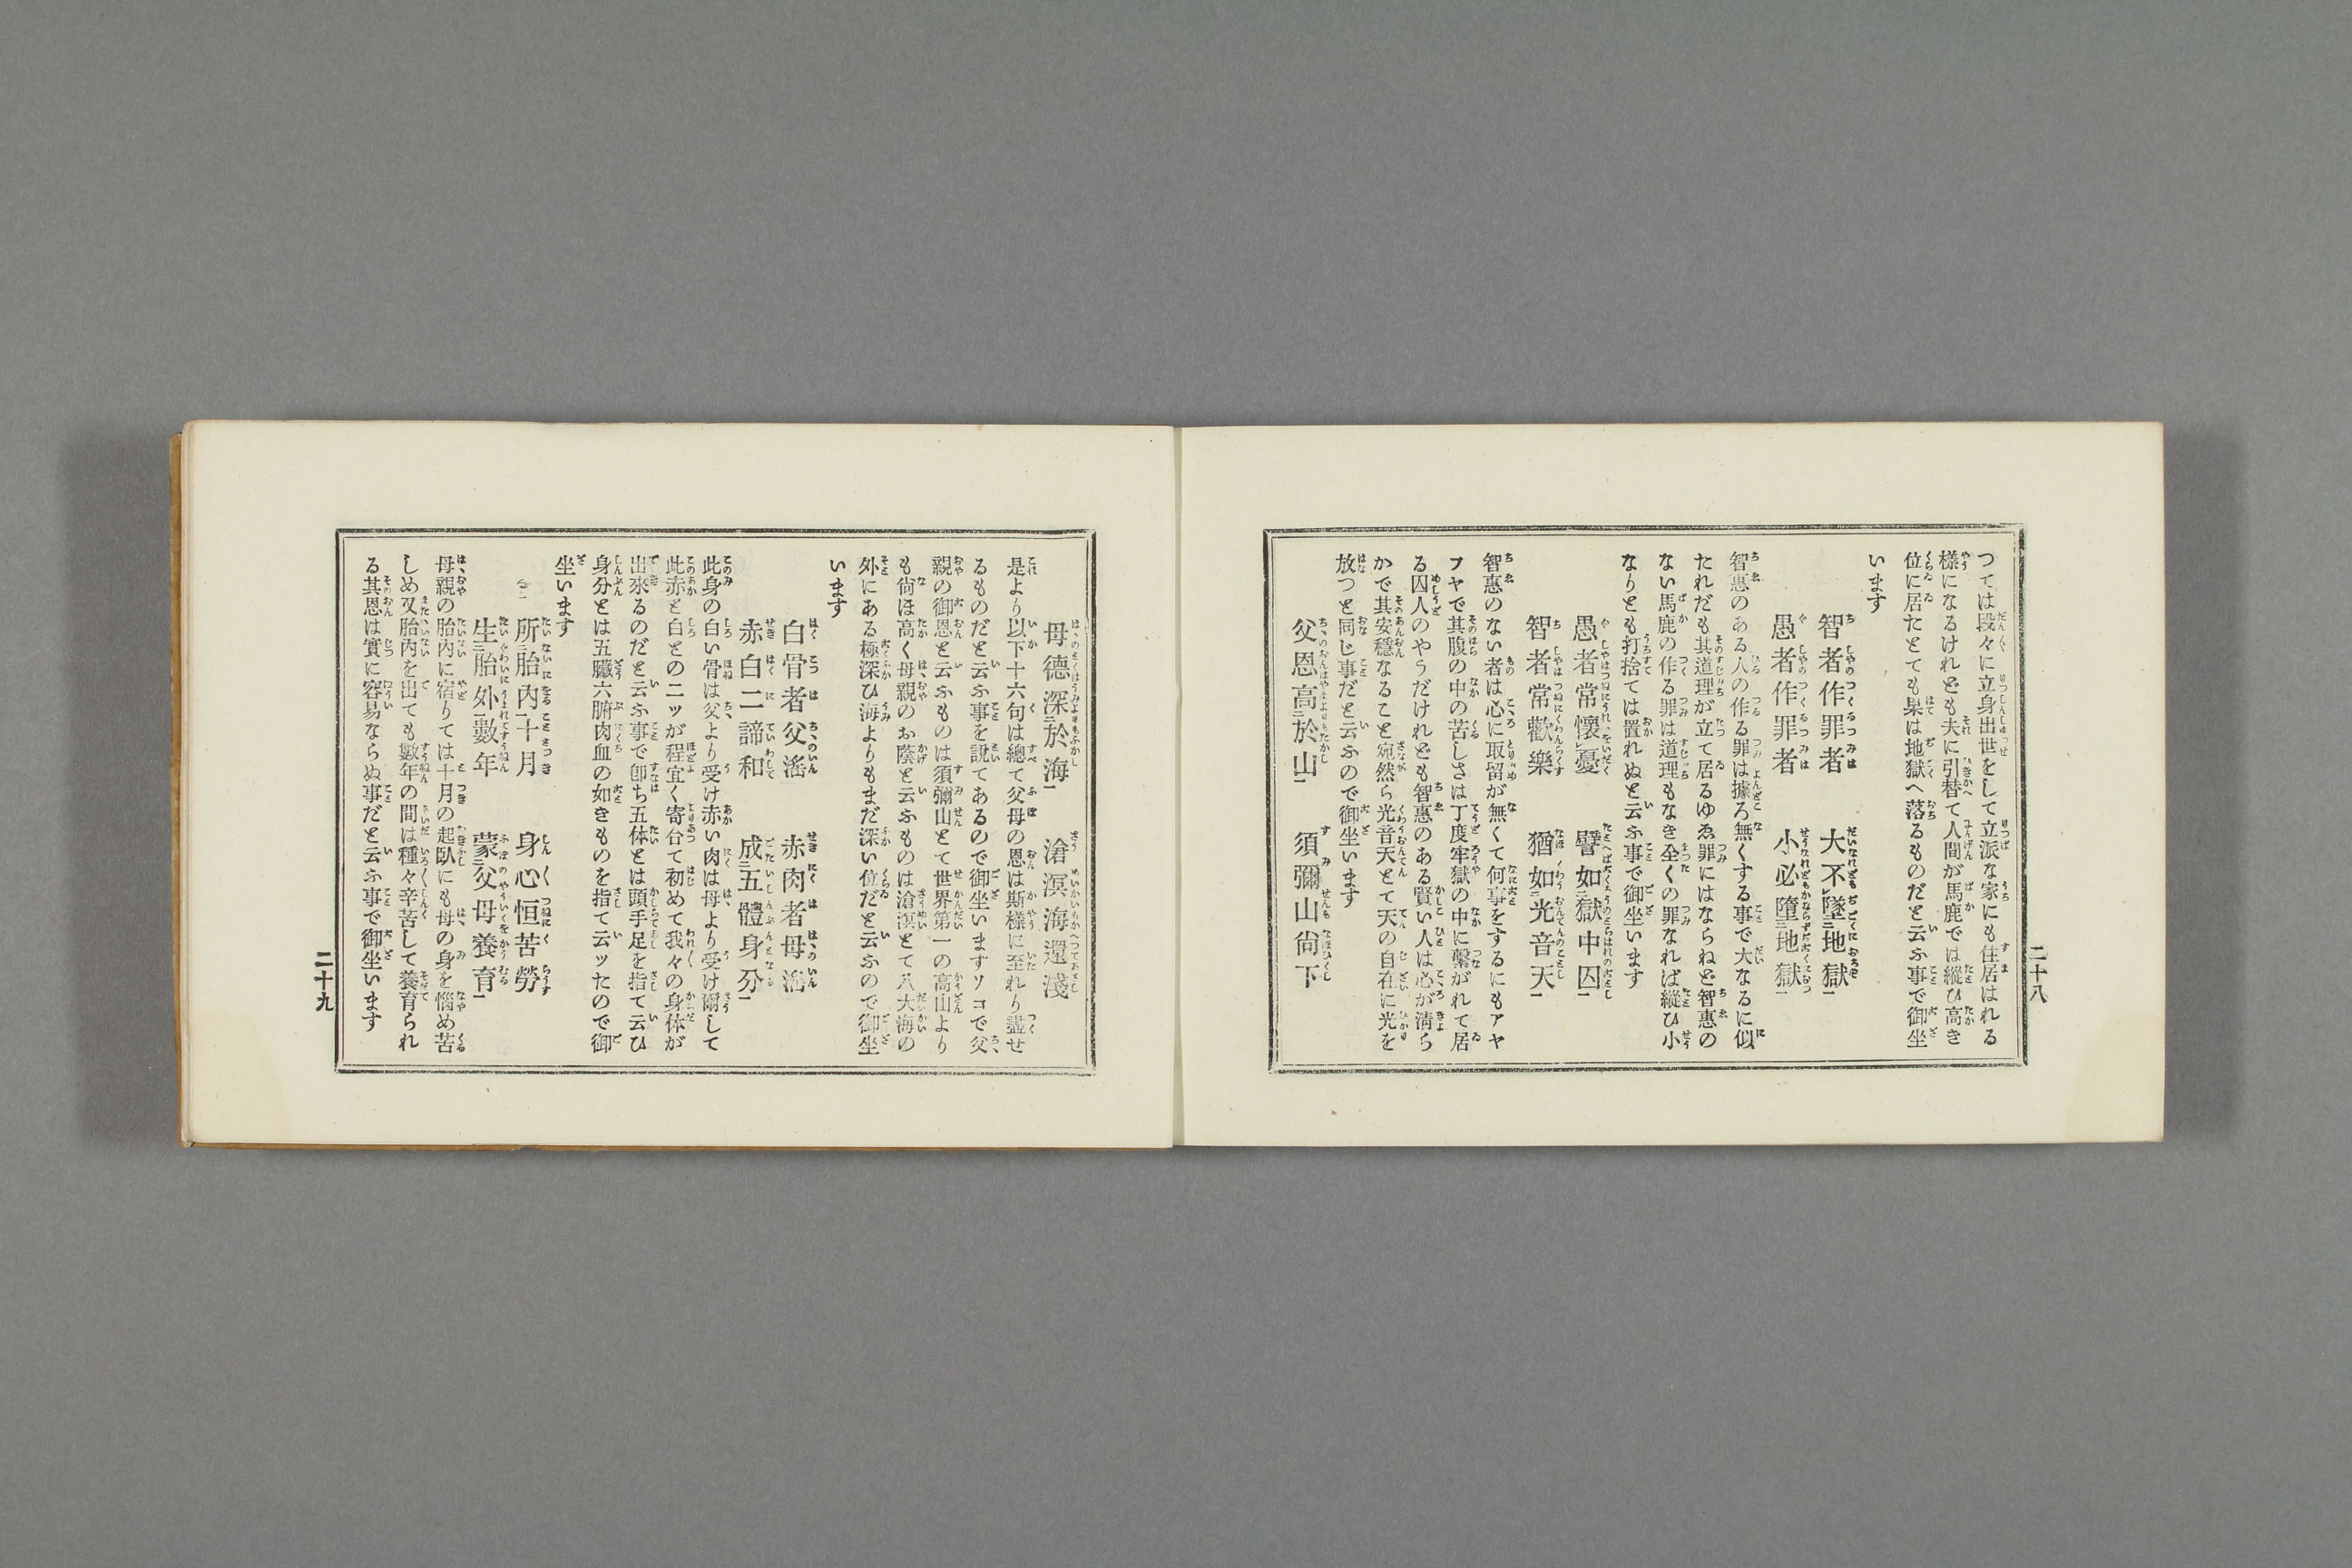 つては段々に立身出世をして立派な家にも住居はれる
樣になるけれども夫に引替て人間が馬鹿では縱ひ高き
位に居たとても果は地獄へ落るものだと云ふ事で御坐
います
智者作罪者　大不墜地獄
愚者作罪者　小必墮地獄
智惠のある人の作る罪は據ろ無くする事で大なるに似
たれども其道理が立て居るゆゑ罪にはならねど智惠の
ない馬鹿の作る罪は道理もなき全くの罪なれば縱ひ小
なりとも打捨ては置れぬと云ふ事で御坐います
愚者常懷憂　譬如獄中囚
智者常歡樂　猶如光音天
智惠のない者は心に取留が無くて何事をするにもアヤ
フヤで其腹の中の苦しさは丁度牢獄の中に繫がれて居
る囚人のやうだけれども智惠のある賢い人は心が淸ら
かで其安穩なること宛然ら光音天とて天の自在に光を
放つと同じ事だと云ふので御坐います
父恩高於山　須彌山尙下
二十八
母德深於海　滄溟海還淺
是より以下十六句は總て父母の恩は斯樣に至れり盡せ
るものだと云ふ事を說てあるので御坐いますソコで父
親の御恩と云ふものは須彌山とて世界第一の高山より
も尙ほ高く母親のお蔭と云ふものは滄溟とて八大海の
外にある極深ひ海よりもまだ深い位だと云ふので御坐
います
白骨者父滛　赤肉者母滛
赤白二諦和　成五體身分
此身の白い骨は父より受け赤い肉は母より受け爾して
此赤と白との二ッが程宜く寄合て初めて我々の身体が
出來るのだと云ふ事で卽ち五体とは頭手足を指て云ひ
身分とは五臟六腑肉血の如きものを指て云ッたので御
坐います
所胎內十月　身心恒苦勞
生胎外數年　蒙父母養育
母親の胎內に宿りては十月の起臥にも母の身を惱め苦
しめ又胎內を出ても數年の間は種々辛苦して養育られ
る其恩は實に容易ならぬ事だと云ふ事で御坐います
二十九